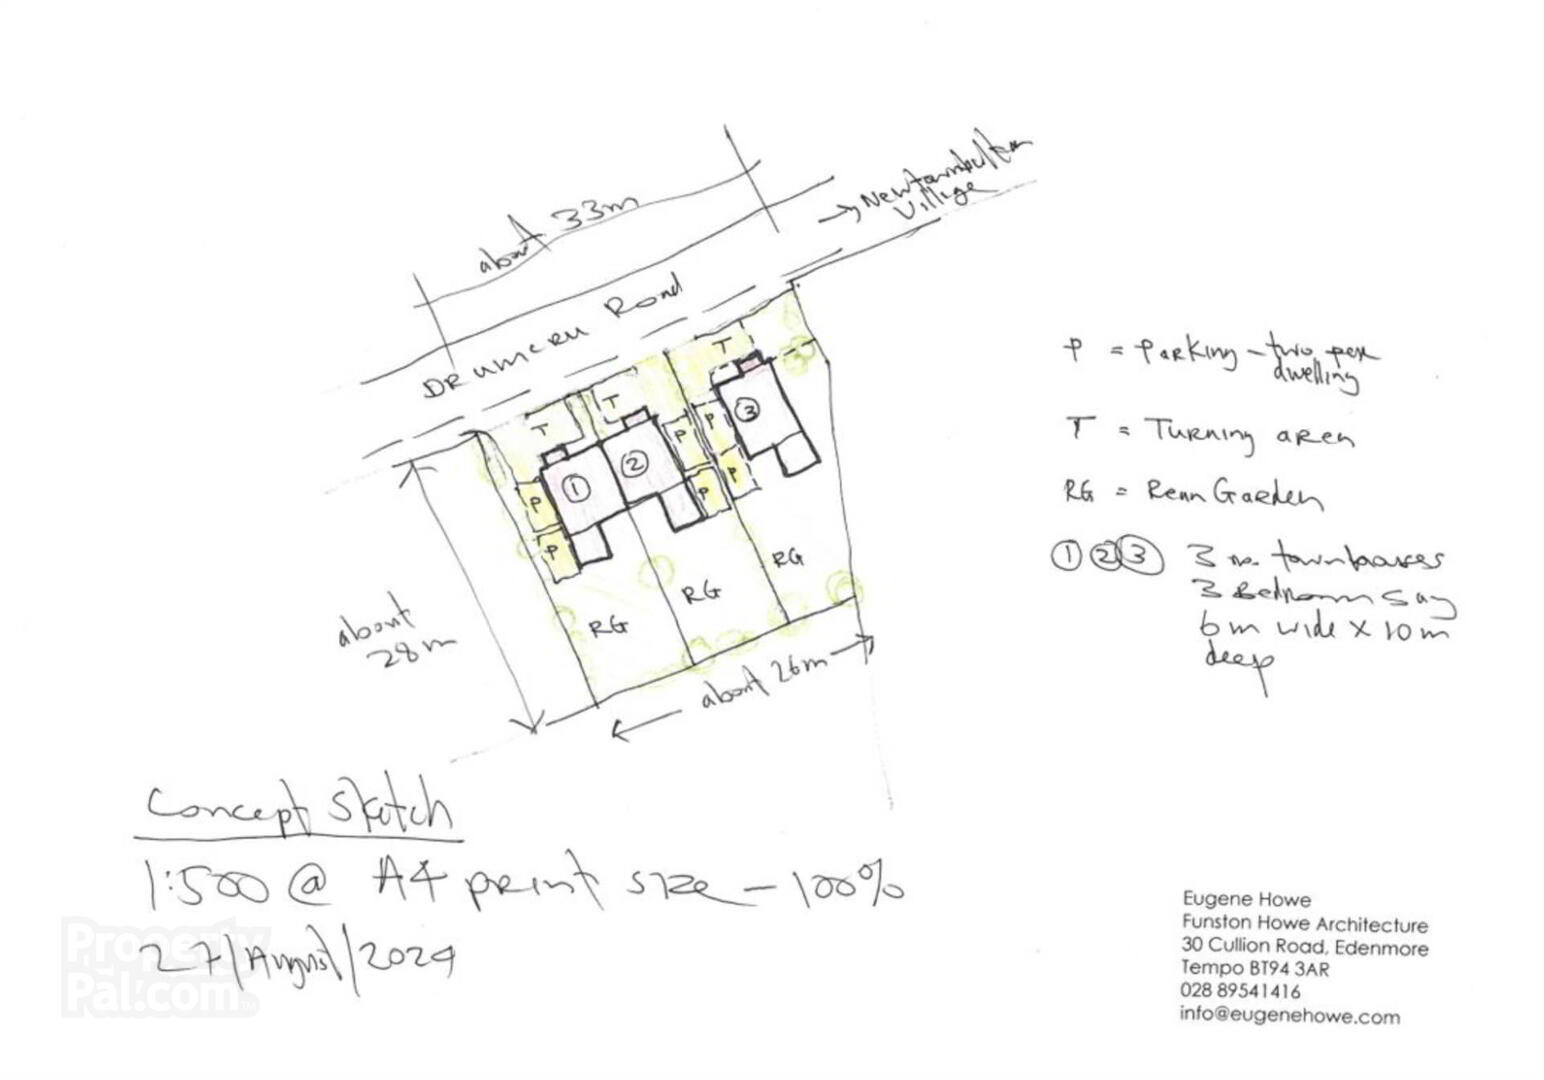 about 33m
→ Newtownbutler
Village
Drumcru Road
T
T
T
1
2
3
P
P
P
P
P
P
RG
RG
RG
about
28m
about 26m
P = Parking - two per
dwelling
T = Turning area
RG = Rear Garden
1 2 3 3 no. townhouses
3 Bedroom say
6m wide x 10m
deep
Concept Sketch
1:500 @ A4 print size - 100%
27/August/2024
Property
Pal.com™
Eugene Howe
Funston Howe Architecture
30 Cullion Road, Edenmore
Tempo BT94 3AR
028 89541416
info@eugenehowe.com